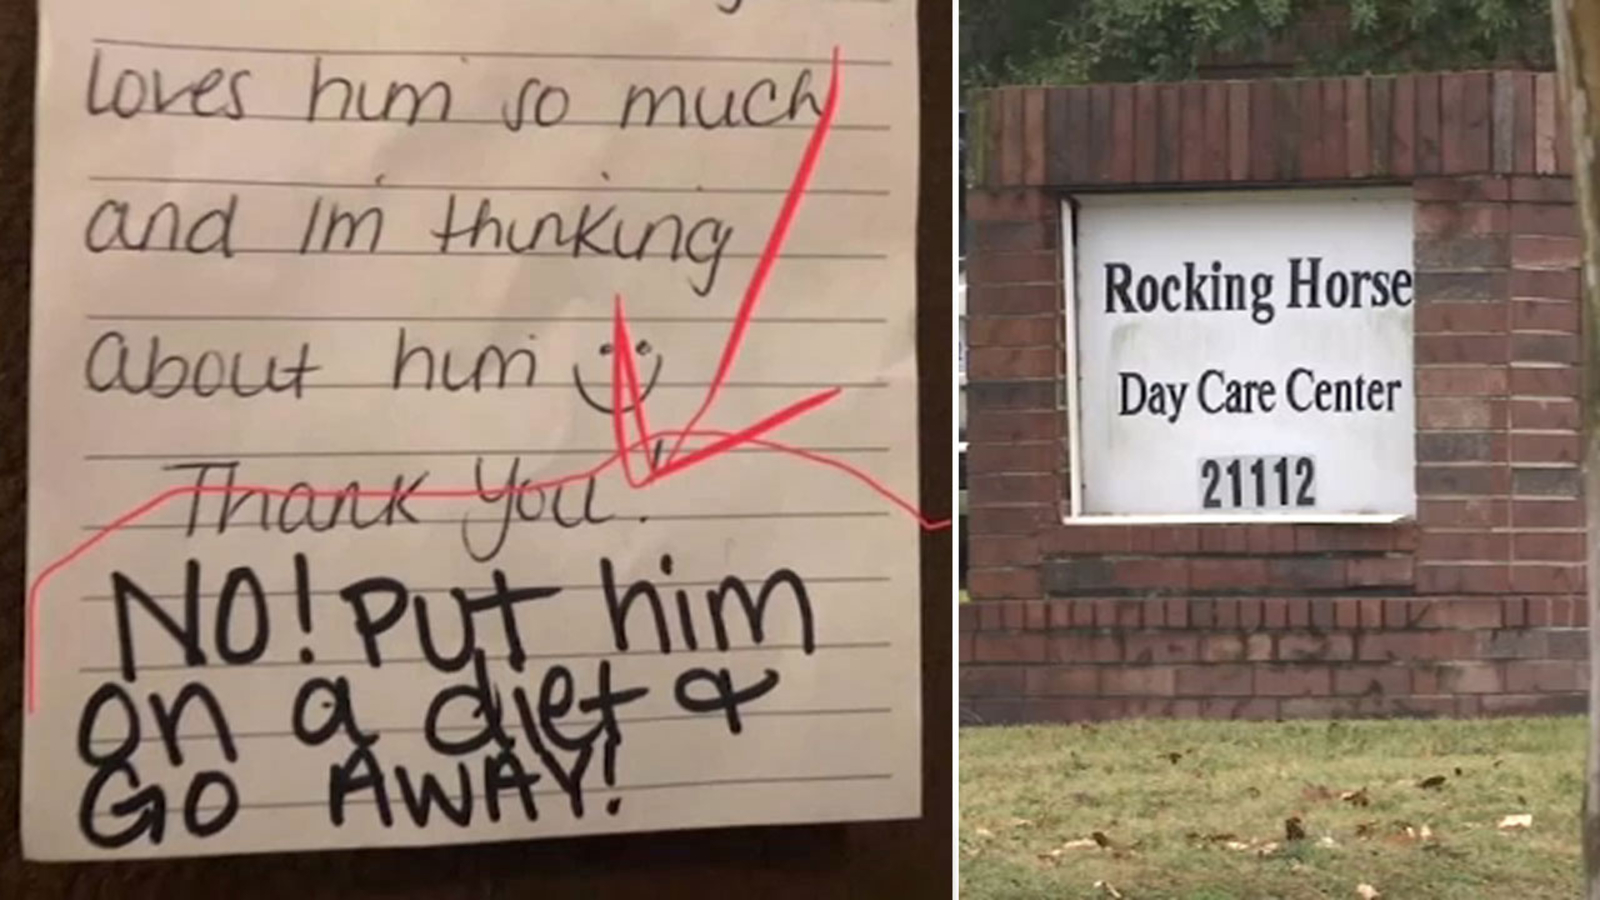 loves him so much
and Im thinking
about him
Thank You!
NO! Put him
on a diet &
GO AWAY!
Rocking Horse
Day Care Center
21112